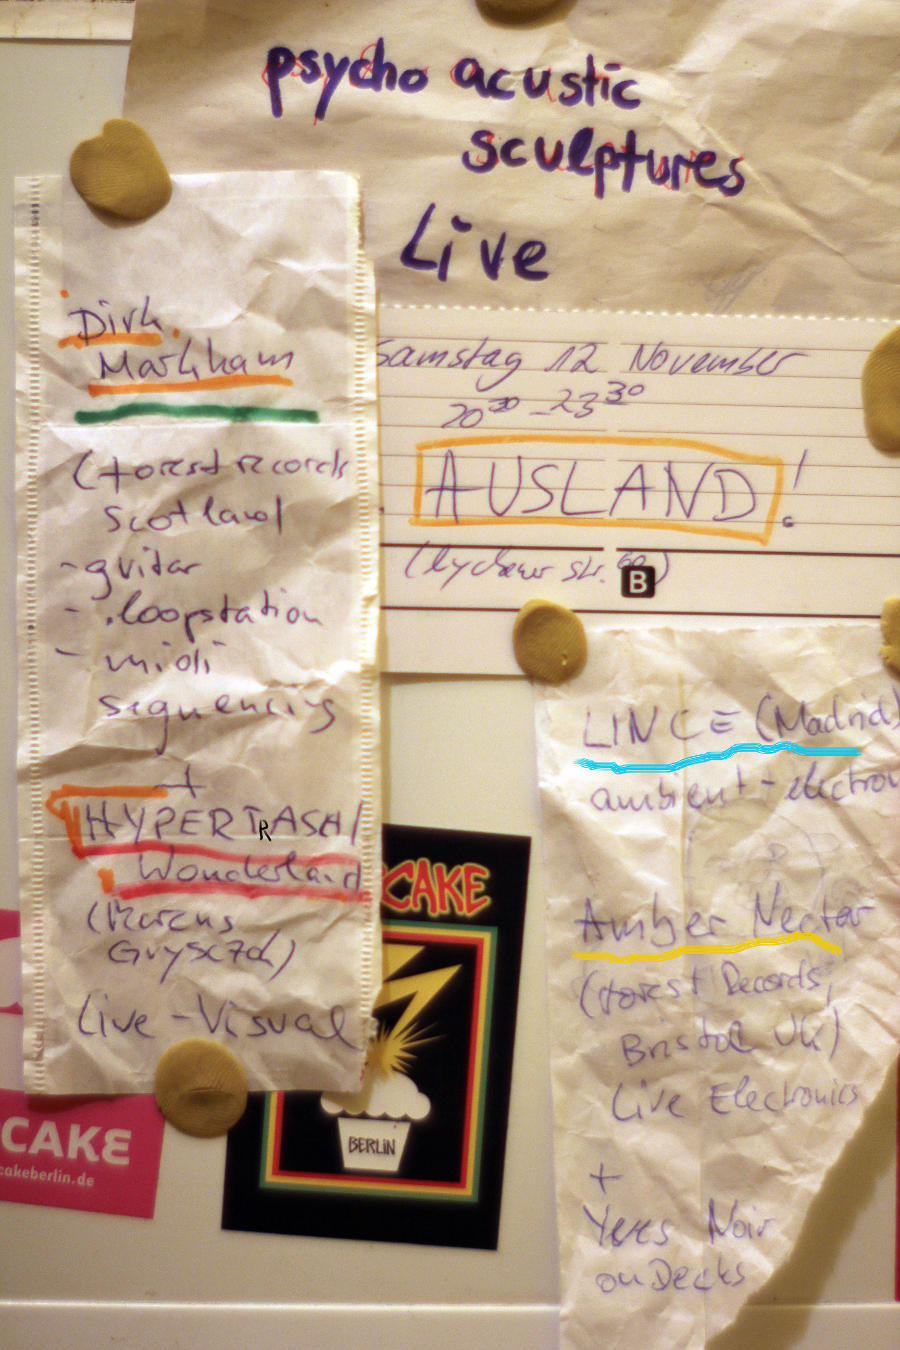 psycho acustic
sculptures
Live
Samstag 12 November
20³⁰ - 23³⁰
AUSLAND!
(lychener str. 60)
B
Dirk
Markham
(forest records
Scotland
- guitar
- loopstation
- midi
sequencing
+
HYPERTRASH/
Wonderland
(Marcus
Live - Visual
LINCE (Madrid)
ambient - electron
Amber Nectar
(forest Records,
Bristol UK)
Live Electronics
+
Yves Noir
on Decks
CAKE
BERLiN
CAKE
cakeberlin.de